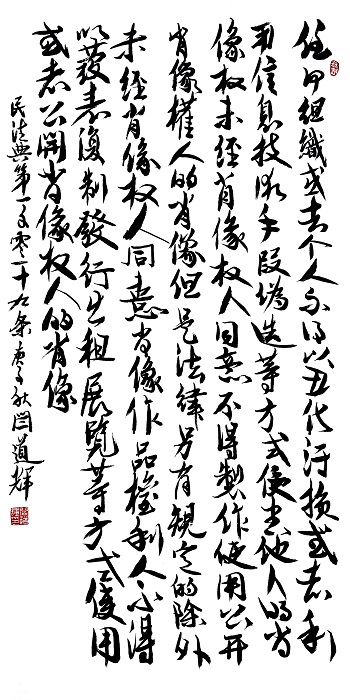 任何组織或者个人不得以丑化污损或者利
用信息技術手段偽造等方式侵害他人的肖
像权未经肖像权人同意不得製作使用公开
肖像權人的肖像但是法律另有規定的除外
未经肖像权人同意肖像作品權利人不得
以發表復制發行出租展覽等方式使用
或者公開肖像权人的肖像
民法典第一千零一十九条庚子秋闫道輝